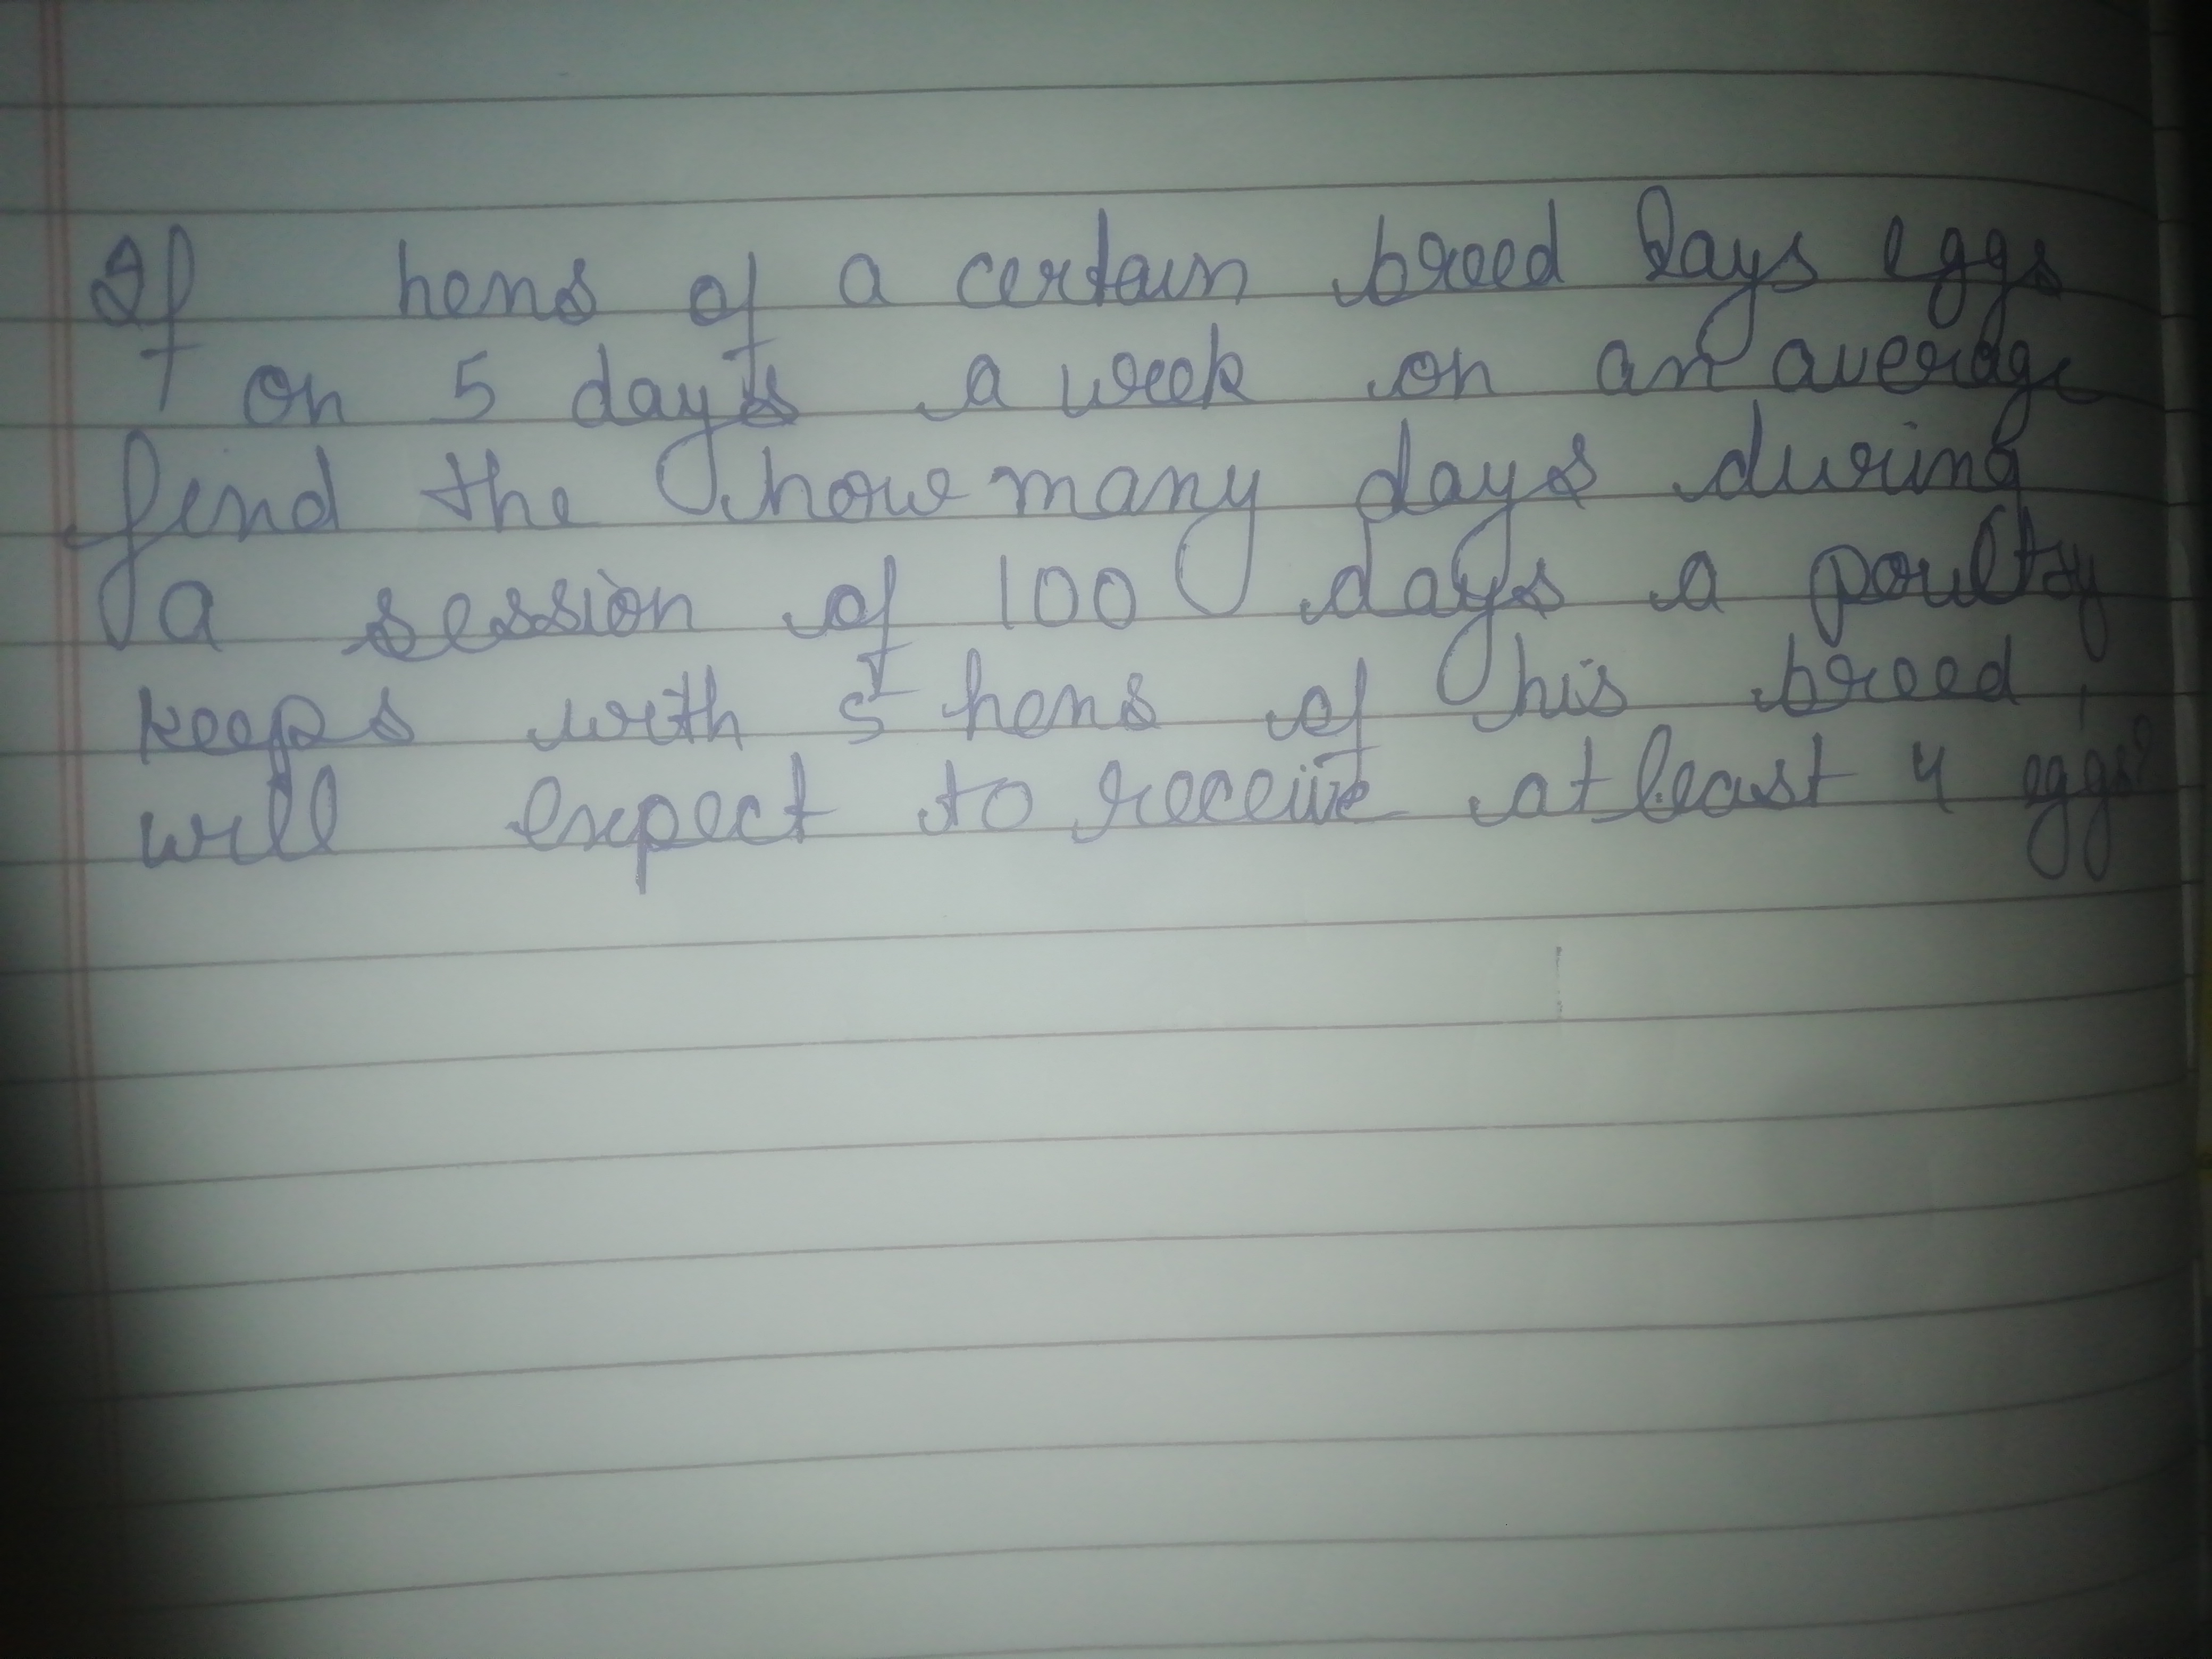 If hens of a certain breed lays eggs
on 5 days a week on an average
find the how many days during
a session of 100 days a poultry
keeps with 5 hens of his breed,
will expect to receive atleast 4 eggs?